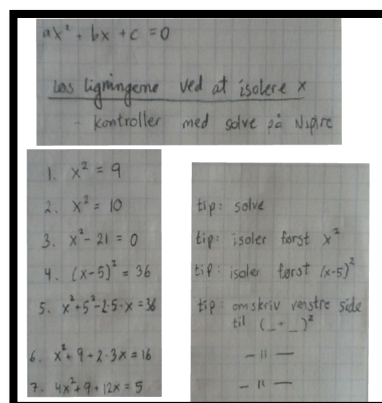 ax² + bx + c = 0
Løs ligningerne ved at isolere x
- kontroller med solve på Nspire
1. x² = 9
2. x² = 10
3. x² - 21 = 0
4. (x-5)² = 36
5. x² + 5² - 2·5·x = 36
6. x² + 9 + 2·3x = 16
7. 4x² + 9 + 12x = 5
tip: solve
tip: isoler først x²
tip: isoler først (x-5)²
tip: omskriv venstre side
til (_ + _)²
— 11 —
— 11 —